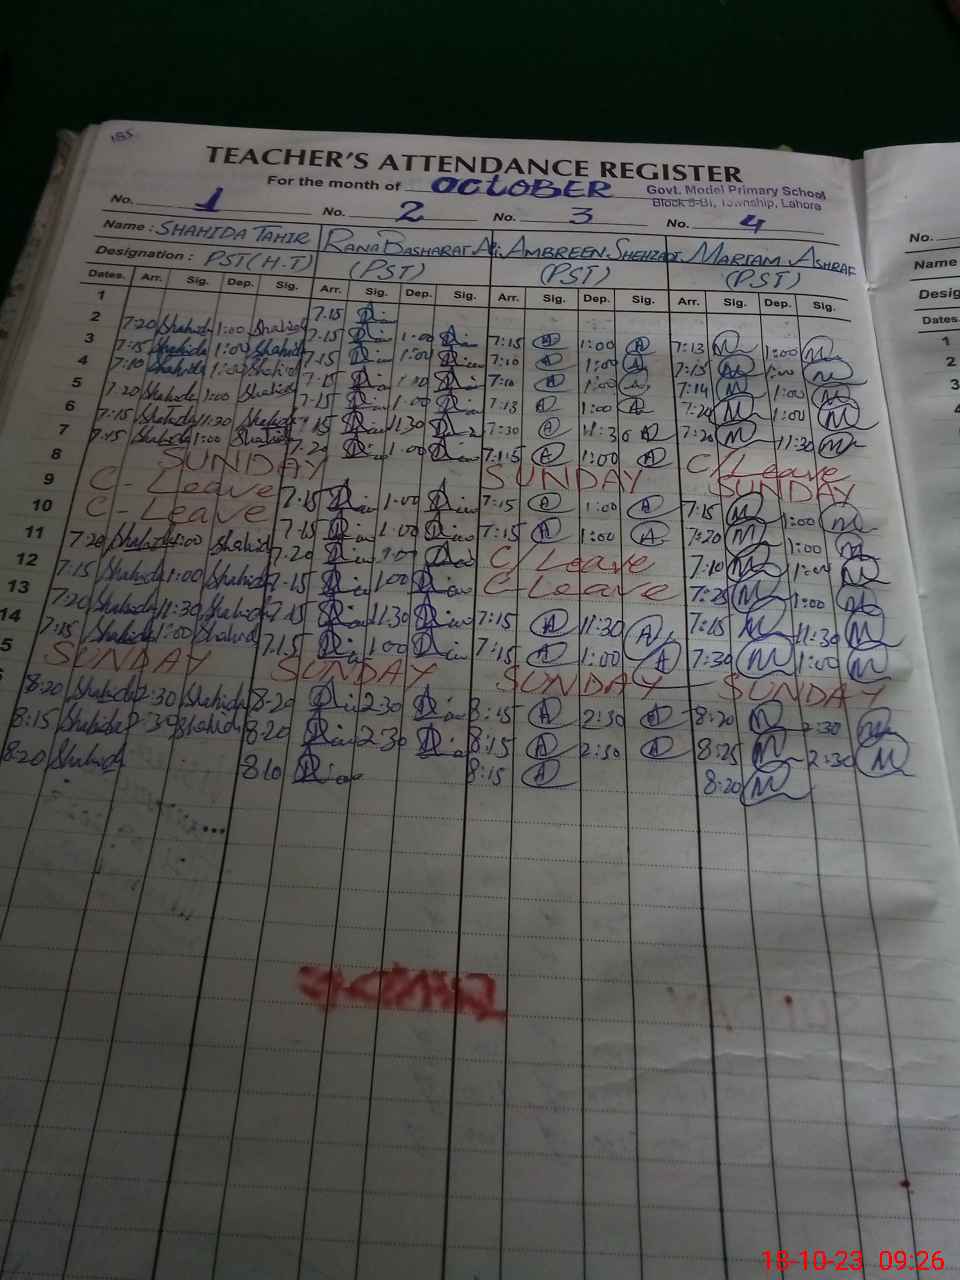 185
TEACHER'S ATTENDANCE REGISTER
For the month of OCTOBER
Govt. Model Primary School
Block 5-B1, Township, Lahore
No. 1 No. 2 No. 3 No. 4 No.
Name : SHAHIDA TAHIR RANA BASHARAT Ali AMBREEN SHEHZADI MARIAM ASHRAF Name
Designation : PST (H.T) (PST) (PST) (PST)
Dates. Arr. Sig. Dep. Sig. Arr. Sig. Dep. Sig. Arr. Sig. Dep. Sig. Arr. Sig. Dep. Sig. Dates.
1 7.15
2 7:20 Shahida 1:00 Shahida 7.15 1.00 7:15 A 1:00 A 7:13 M 1:00 M
3 7:15 Shahida 1:00 Shahida 7.15 1:00 7:10 A 1:00 A 7:15 M 1:00 M
4 7:10 Shahida 1:00 Shahida 7.15 7:10 A 1:00 7:14 M 1:00 M
5 7:20 Shahida 1:00 Shahida 7.15 1.00 7:13 A 1:00 A 7:20 M 1:00 M
6 7:15 Shahida 11:30 Shahida 7.15 11.30 7:30 A 11:30 A 7:20 M 11:30 M
7 7:15 Shahida 1:00 Shahida 7.20 1.00 7:15 A 1:00 A C/Leave
8 SUNDAY SUNDAY SUNDAY
9 C-Leave 7.15 1.00 7:15 A 1:00 A 7:15 M 1:00 M
10 C-Leave 7.15 1.00 7:15 A 1:00 A 7:20 M 1:00 M
11 7:20 Shahida 1:00 Shahida 7.20 1.00 C/Leave 7:10 M 1:00 M
12 7:15 Shahida 1:00 Shahida 7.15 1.00 C-Leave 7:25 M 1:00 M
13 7:20 Shahida 11:30 Shahida 7.15 11.30 7:15 A 11:30 A 7:15 M 11:30 M
14 7:15 Shahida 1:00 Shahida 7.15 1.00 7:15 A 1:00 A 7:30 M 1:00 M
5 SUNDAY SUNDAY SUNDAY SUNDAY
8:20 Shahida 2:30 Shahida 8.20 2.30 8:15 A 2:30 A 8:20 M 2:30 M
8:15 Shahida 2:30 Shahida 8.20 2.30 8:15 A 2:30 A 8:25 M 2:30 M
8:20 Shahida 8.10 8:15 A 8:20 M
18-10-23 09:26